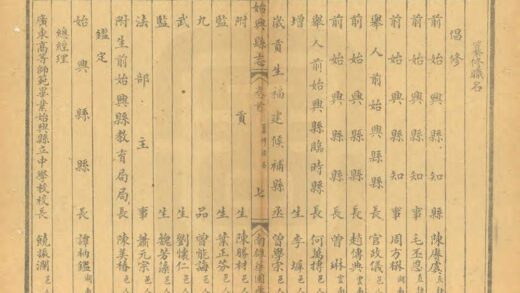 纂修職名
倡修
前始興縣知事 陳賡虞
前始興縣知事 毛丕
前始興縣知事 周方
舉人前始興縣長 官政儀
前始興縣長 趙傳典
前始興縣長 曾琳
舉人前始興縣臨時縣長 何萬摶
增生 李墀
歲貢生福建候補縣丞 曾學宗
始興縣志 卷首 纂修職名 七 南雄
附貢 陳勝材
監生 葉正芬
九品 曾能海
武生 劉懷仁
監生 魏若濂
法部主事 蕭元宗
附生前始興縣教育局局長 陳美椿 邑人
鑑定
始興縣縣長 譚柄鑑
總經理
廣東高等師範畢業始興縣立中學校校長 饒振瀾 邑人